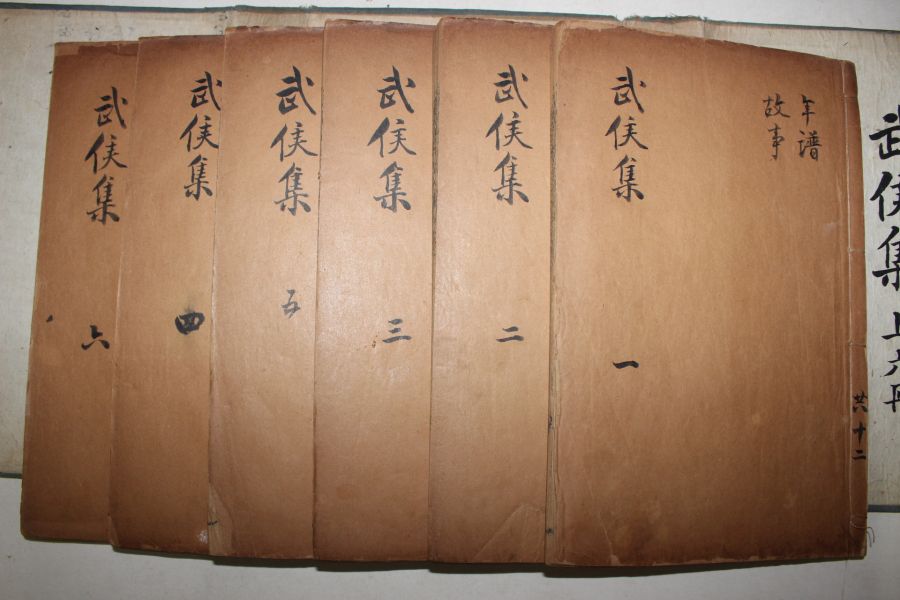 武侯集 上六冊
年譜
故事
武侯集 一
共十二
武侯集 二
武侯集 三
武侯集 五
武侯集 四
武侯集 六